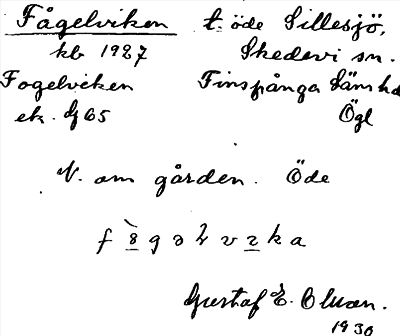 Fågelviken t. öde Sillesjö,
kb 1927 Skedevi sn.
Fogelvicken Finspånga Läns hd
ek. 65 Ögl
N. om gården. Öde
Gustaf E. Olsson.
1930